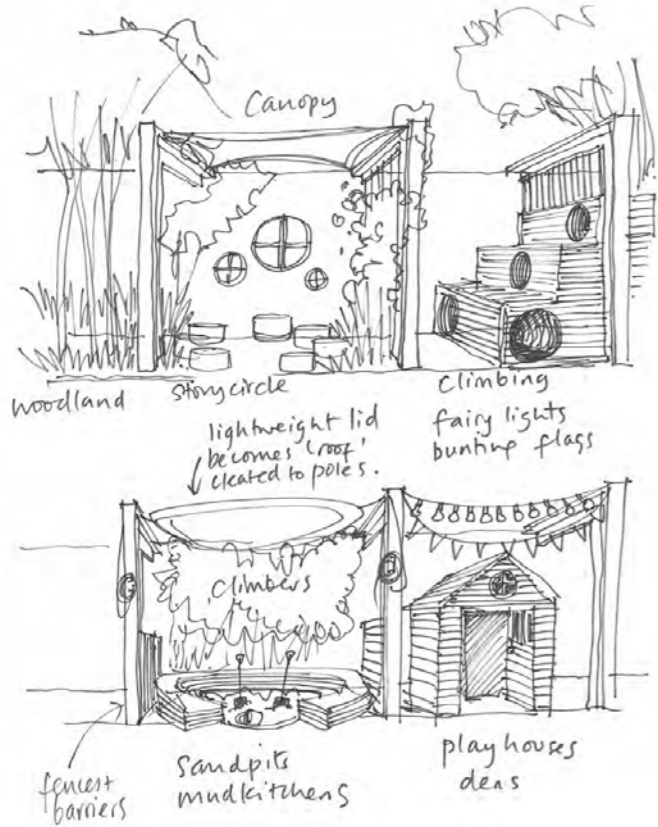 Canopy
woodland
storycircle
Climbing
fairy lights
bunting flags
lightweight lid
becomes 'roof'
cleated to poles.
Climbers
fences+
barriers
sandpits
mudkitchens
playhouses
dens